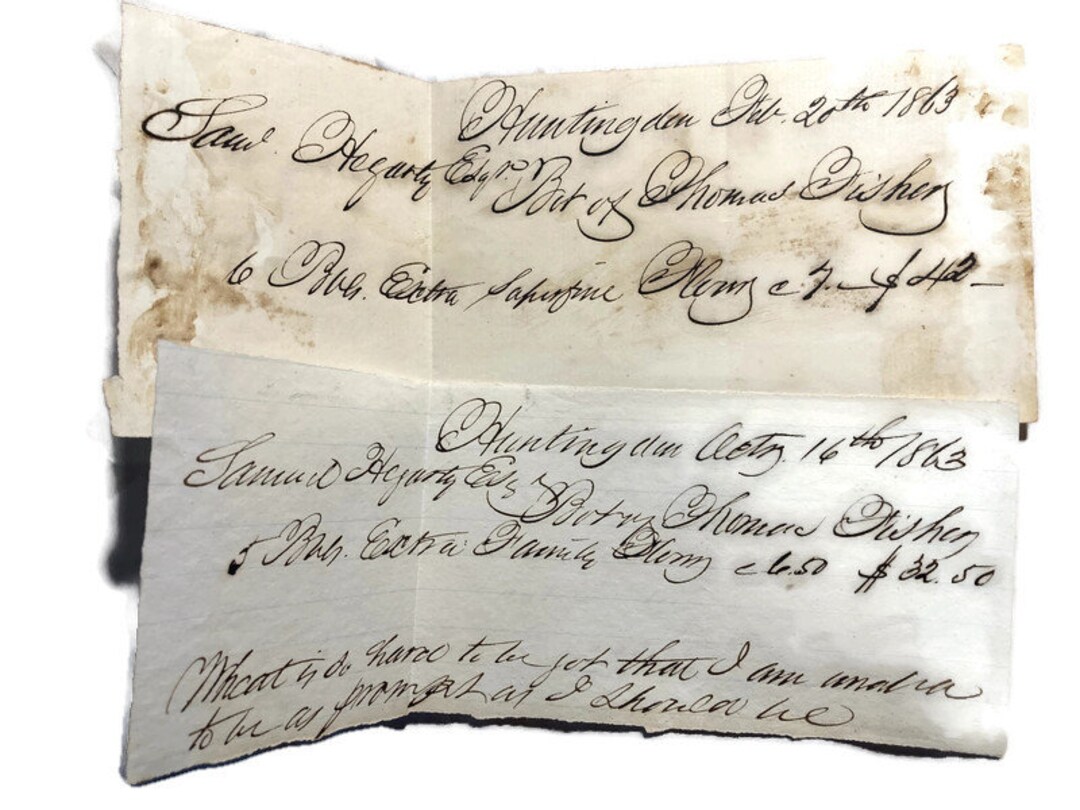 Huntingdon Feb. 20th 1863
Saml. Hegarty Esqr.
Bot of Thomas Fisher
6 Bbls. Extra Superfine Flour @ 7. — $42 —
Huntingdon Octr. 16th 1863
Samuel Hegarty Esqr
Bot of Thomas Fisher
5 Bbls. Extra Family Flour @ 6.50 $32.50
Wheat is so hard to be got that I am unable
to be as prompt as I should be